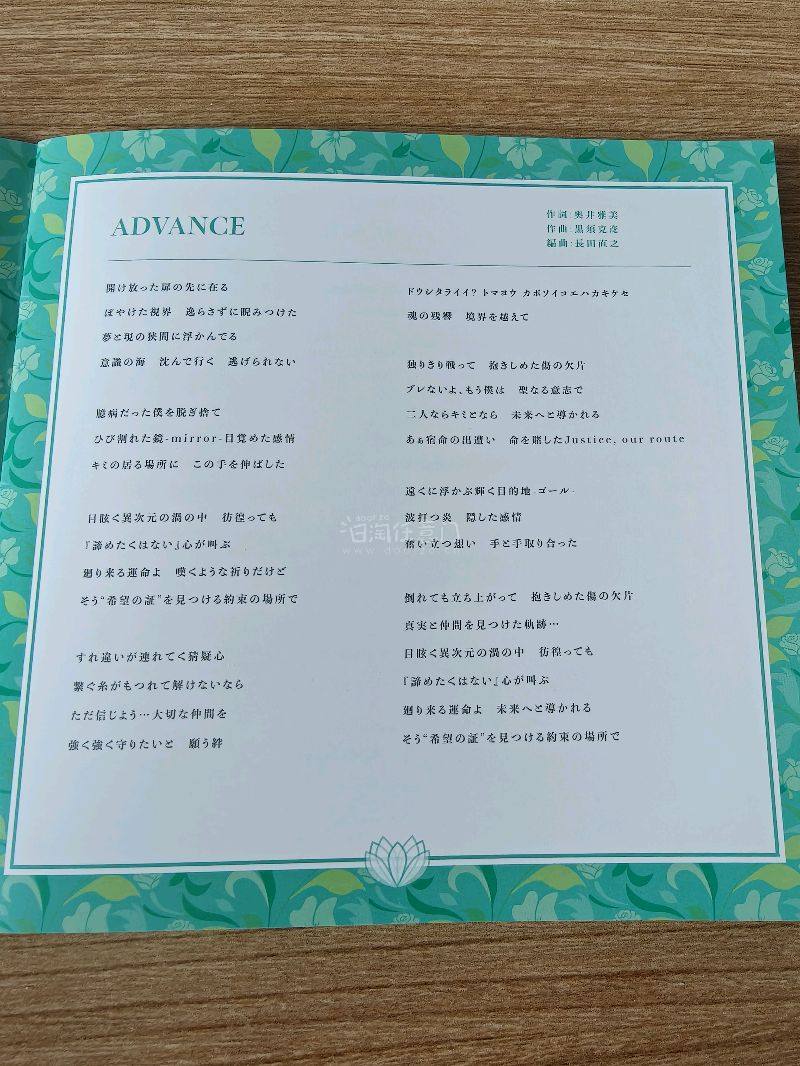 ADVANCE
作詞:奥井雅美
作曲:黒須克彦
編曲:長田直之
開け放った扉の先に在る
ぼやけた視界　逸らさずに睨みつけた
夢と現の狭間に浮かんでる
意識の海　沈んで行く　逃げられない
臆病だった僕を脱ぎ捨て
ひび割れた鏡-mirror-目覚めた感情
キミの居る場所に　この手を伸ばした
目眩く異次元の渦の中　彷徨っても
『諦めたくはない』心が叫ぶ
廻り来る運命よ　嘆くような祈りだけど
そう“希望の証”を見つける約束の場所で
すれ違いが連れてく猜疑心
繋ぐ糸がもつれて解けないなら
ただ信じよう…大切な仲間を
強く強く守りたいと　願う絆
ドウシタライイ? トマヨウ カボソイコエハカキケセ
魂の残響　境界を越えて
独りきり戦って　抱きしめた傷の欠片
ブレないよ、もう僕は　聖なる意志で
二人ならキミとなら　未来へと導かれる
あぁ宿命の出遭い　命を賭したJustice, our route
遠くに浮かぶ輝く目的地-ゴール-
波打つ炎　隠した感情
奮い立つ想い　手と手取り合った
倒れても立ち上がって　抱きしめた傷の欠片
真実と仲間を見つけた軌跡…
目眩く異次元の渦の中　彷徨っても
『諦めたくはない』心が叫ぶ
廻り来る運命よ　未来へと導かれる
そう“希望の証”を見つける約束の場所で